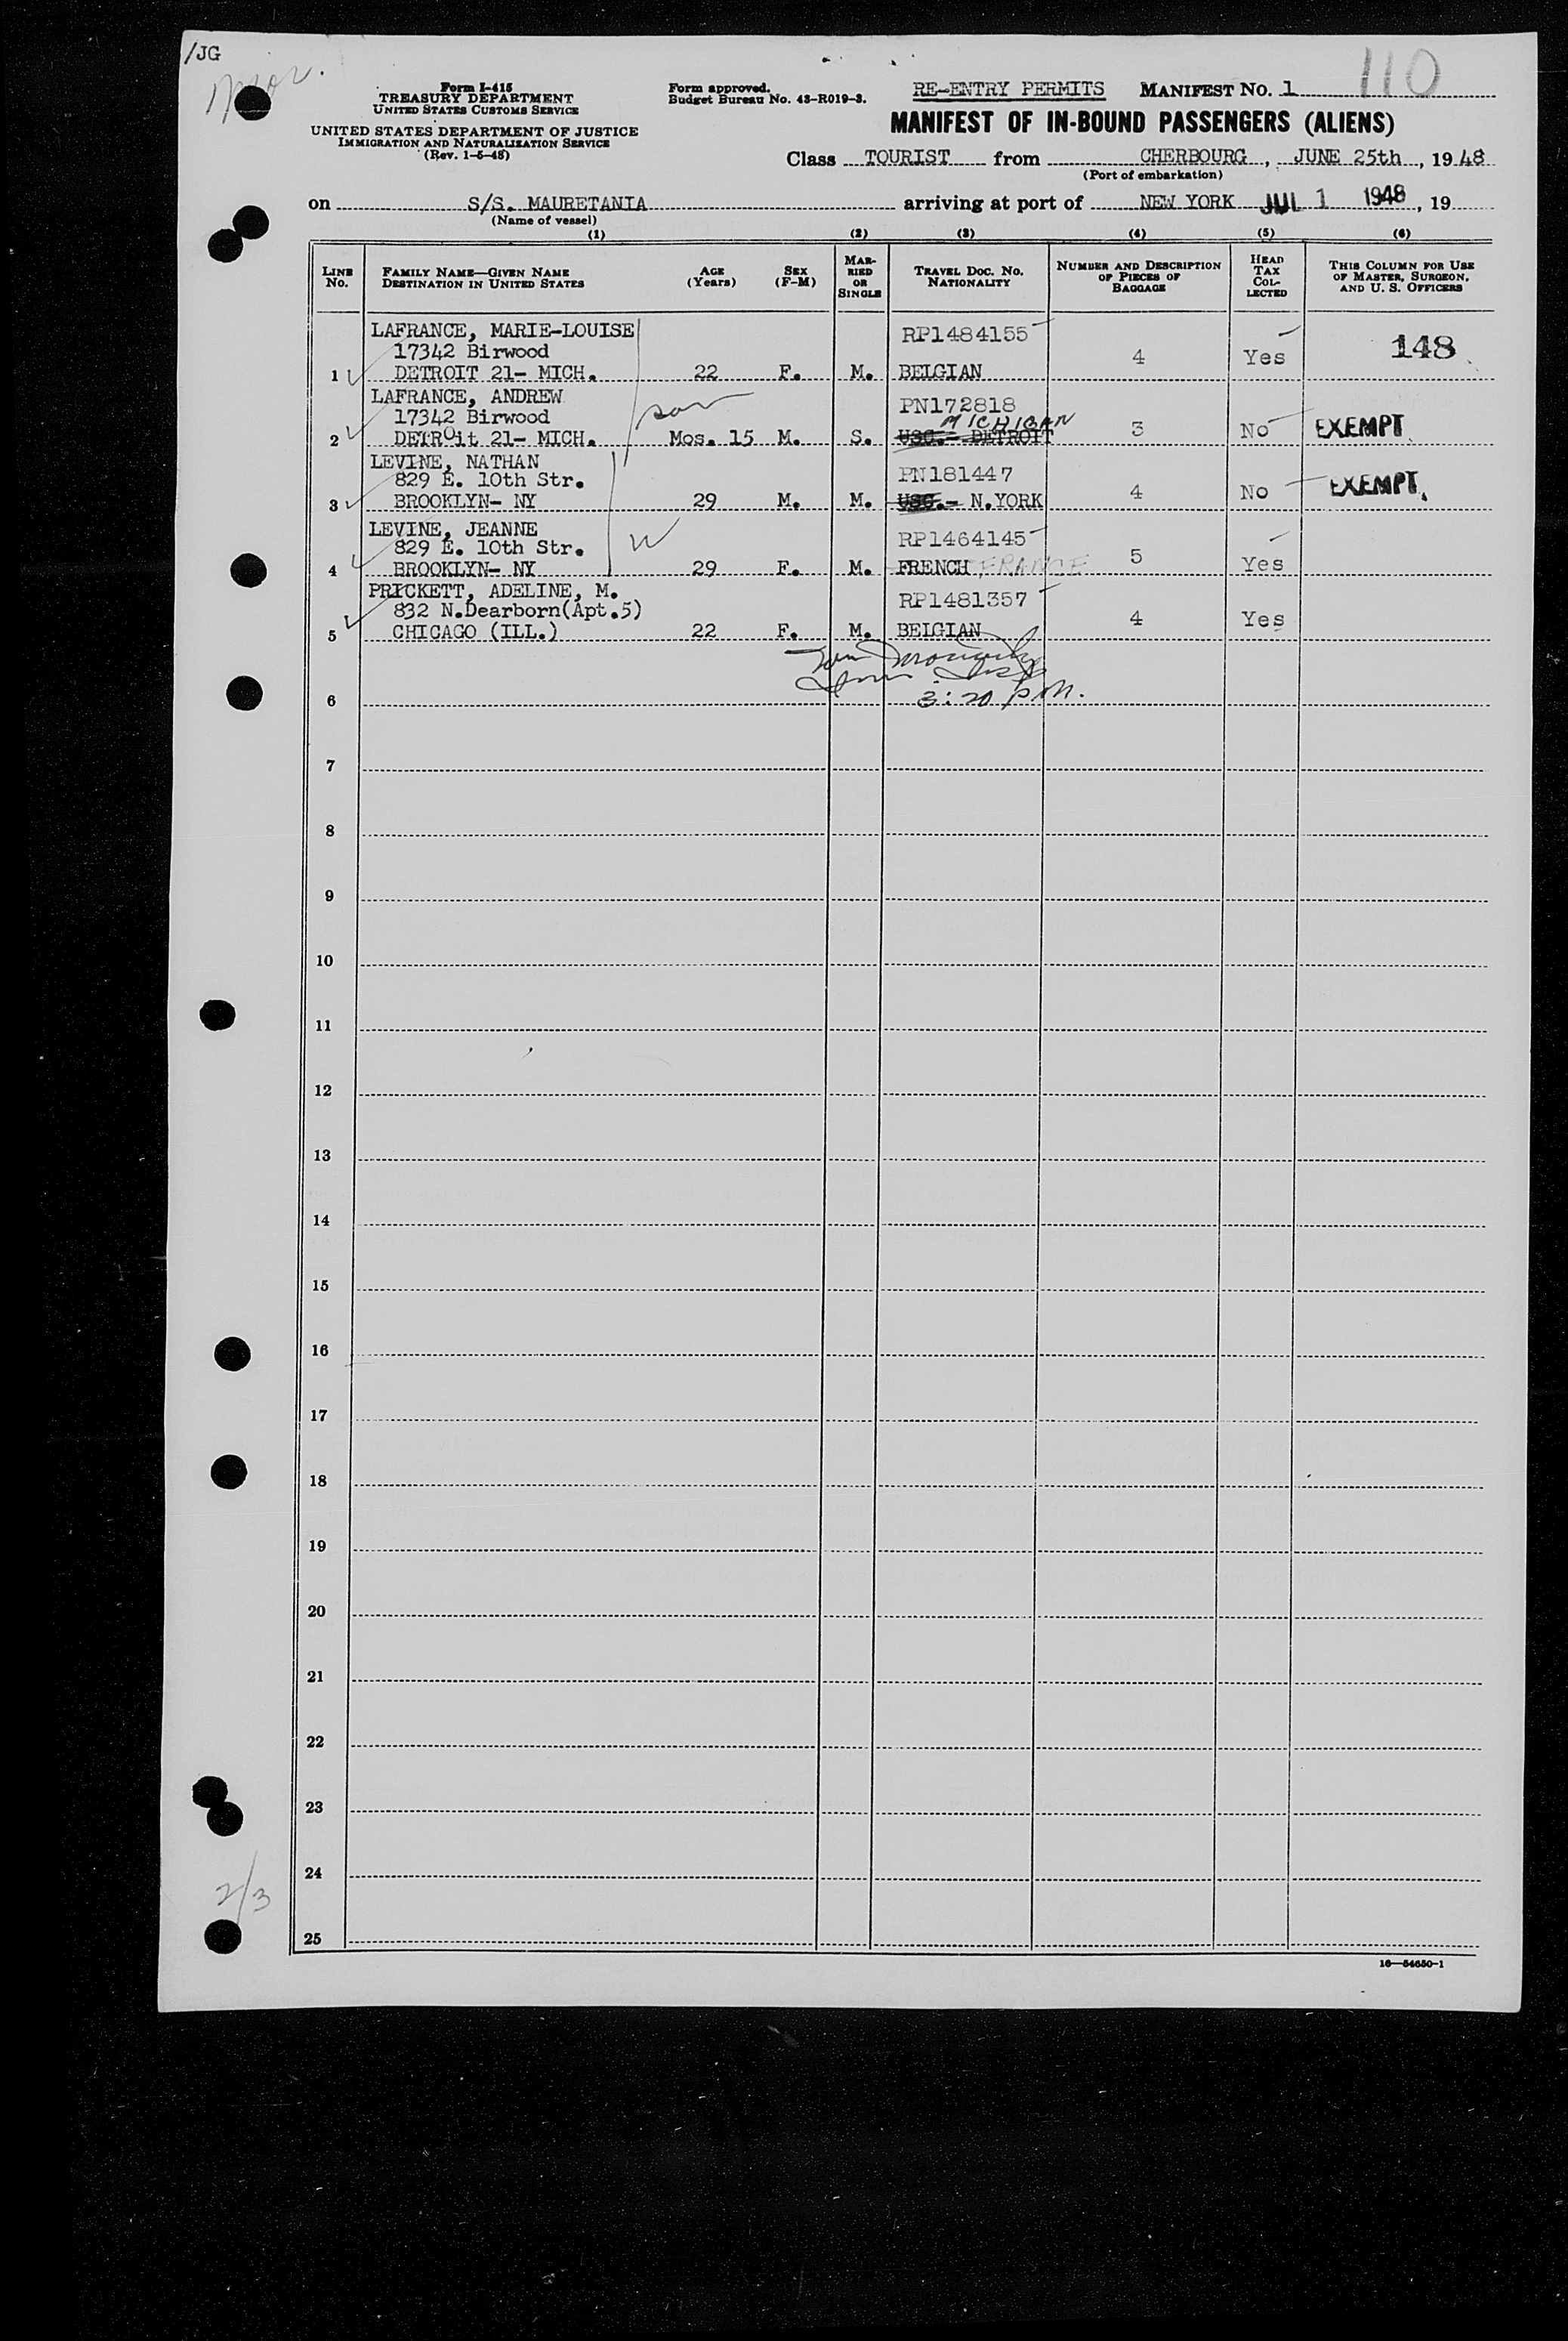 /JG
110
Form I-415
TREASURY DEPARTMENT
UNITED STATES CUSTOMS SERVICE
UNITED STATES DEPARTMENT OF JUSTICE
IMMIGRATION AND NATURALIZATION SERVICE
(Rev. 1-5-48)
Form approved.
Budget Bureau No. 43-R019-3.
RE-ENTRY PERMITS MANIFEST NO. 1
MANIFEST OF IN-BOUND PASSENGERS (ALIENS)
Class TOURIST from CHERBOURG, JUNE 25th, 1948
(Port of embarkation)
on S/S. MAURETANIA arriving at port of NEW YORK JUL 1 1948, 19
(Name of vessel)
(1) (2) (3) (4) (5) (6)
LINE No.
FAMILY NAME—GIVEN NAME
DESTINATION IN UNITED STATES
AGE (Years)
SEX (F-M)
MARRIED OR SINGLE
TRAVEL DOC. NO. NATIONALITY
NUMBER AND DESCRIPTION OF PIECES OF BAGGAGE
HEAD TAX COLLECTED
THIS COLUMN FOR USE OF MASTER, SURGEON, AND U. S. OFFICERS
LAFRANCE, MARIE-LOUISE RP1484155
17342 Birwood 4 Yes 148
1 DETROIT 21- MICH. 22 F. M. BELGIAN
LAFRANCE, ANDREW son PN172818
17342 Birwood MICHIGAN
2 DETROit 21- MICH. Mos. 15 M. S. USC.- DETROIT 3 No EXEMPT
LEVINE, NATHAN PN181447
829 E. 10th Str. 4 No EXEMPT
3 BROOKLYN- NY 29 M. M. USC.- N.YORK
LEVINE, JEANNE RP1464145
829 E. 10th Str. W 5
4 BROOKLYN- NY 29 F. M. FRENCH FRANCE Yes
PRICKETT, ADELINE, M. RP1481357
832 N.Dearborn(Apt.5) 4 Yes
5 CHICAGO (ILL.) 22 F. M. BELGIAN
3:20 p.m.
6
7
8
9
10
11
12
13
14
15
16
17
18
19
20
21
22
23
24
2/3
25
16—54650-1